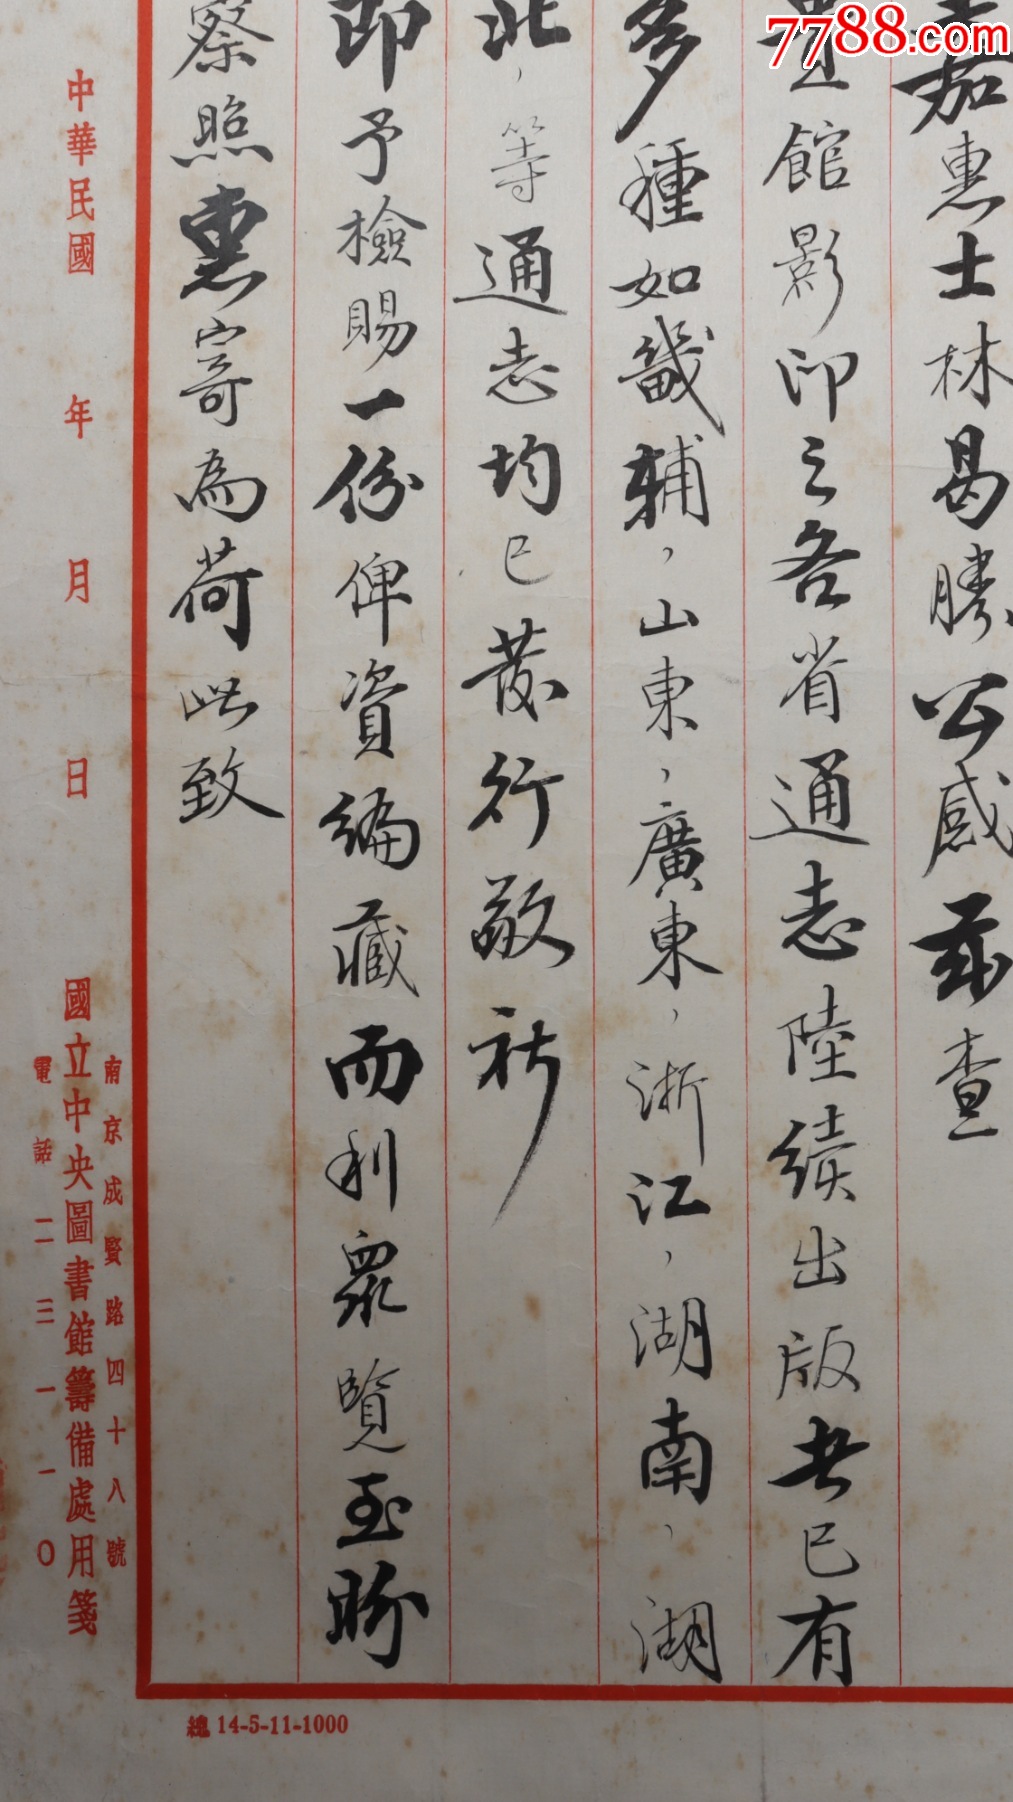 7788.com
嘉惠士林曷勝公感茲查
貴館影印之各省通志陸續出版者已有
多種如畿輔，山東，廣東，浙江，湖南，湖
北，等通志均已發行敬祈
即予檢賜一份俾資編藏而利眾覽至盼
察照惠寄為荷此致
中華民國 年 月 日
南京成賢路四十八號
國立中央圖書館籌備處用箋
電話二三一一〇
總 14-5-11-1000